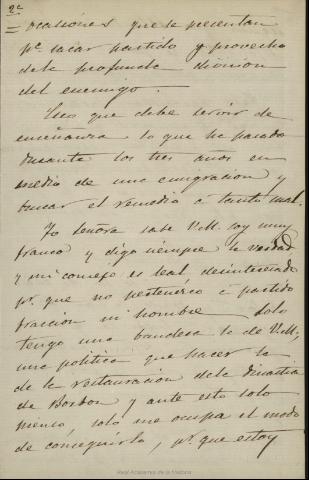 2ª
ocasiones que se presentan
pª sacar partido y provecho
dela profunda division
del enemigo.
Creo que debe servir de
enseñanza lo que ha pasado
durante los tres años en
medio de una emigracion y
buscar el remedio a tanto mal.
Yo Señora sabe V.M. soy muy
franco y digo siempre la verdad
y mi consejo es leal, desinteresado
pr. que no pertenezco a partido
fraccion ni hombre solo
tengo una bandera la de V.M.,
una politica que hacer la
de la restauracion dela Dinastia
de Borbon y ante esto solo
pienso, solo me ocupa el modo
de conseguirlo, pr. que estoy
Real Academia de la Historia